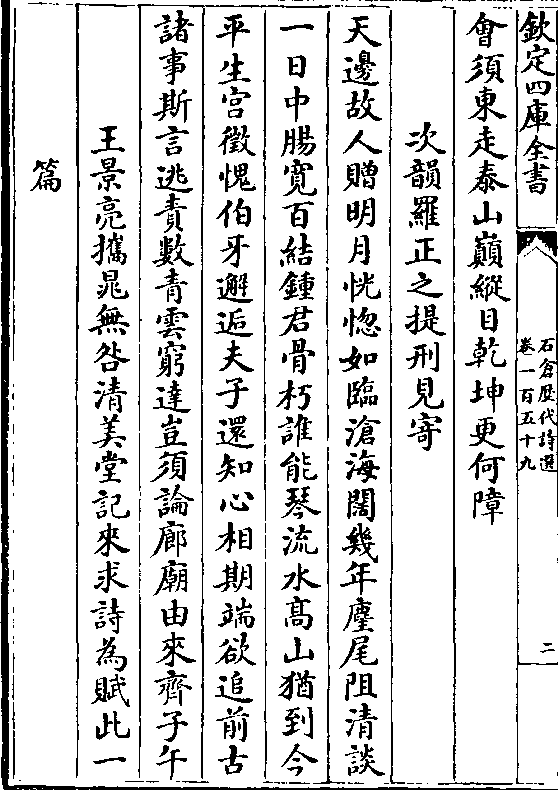 欽定四庫全書
石倉歷代詩選
卷一百五十九
二
會須東走泰山巔縱目乾坤更何障
次韻羅正之提刑見寄
天邊故人贈明月恍惚如臨滄海闊幾年麈尾阻清談
一日中腸寛百結鍾君骨朽誰能琴流水髙山猶到今
平生宫徵愧伯牙邂逅夫子還知心相期端欲追前古
諸事斯言逃責數青雲窮達豈須論廊廟由來齊子午
王景亮攜晁無咎清美堂記來求詩為賦此一
篇